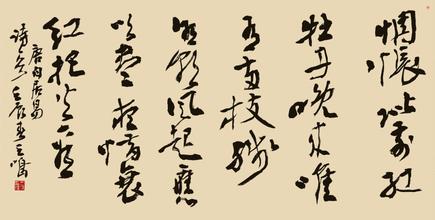 惆悵階前红
牡丹晚來唯
有两枝残
明朝风起應
吹盡夜惜衰
红把火看
唐白居易
诗